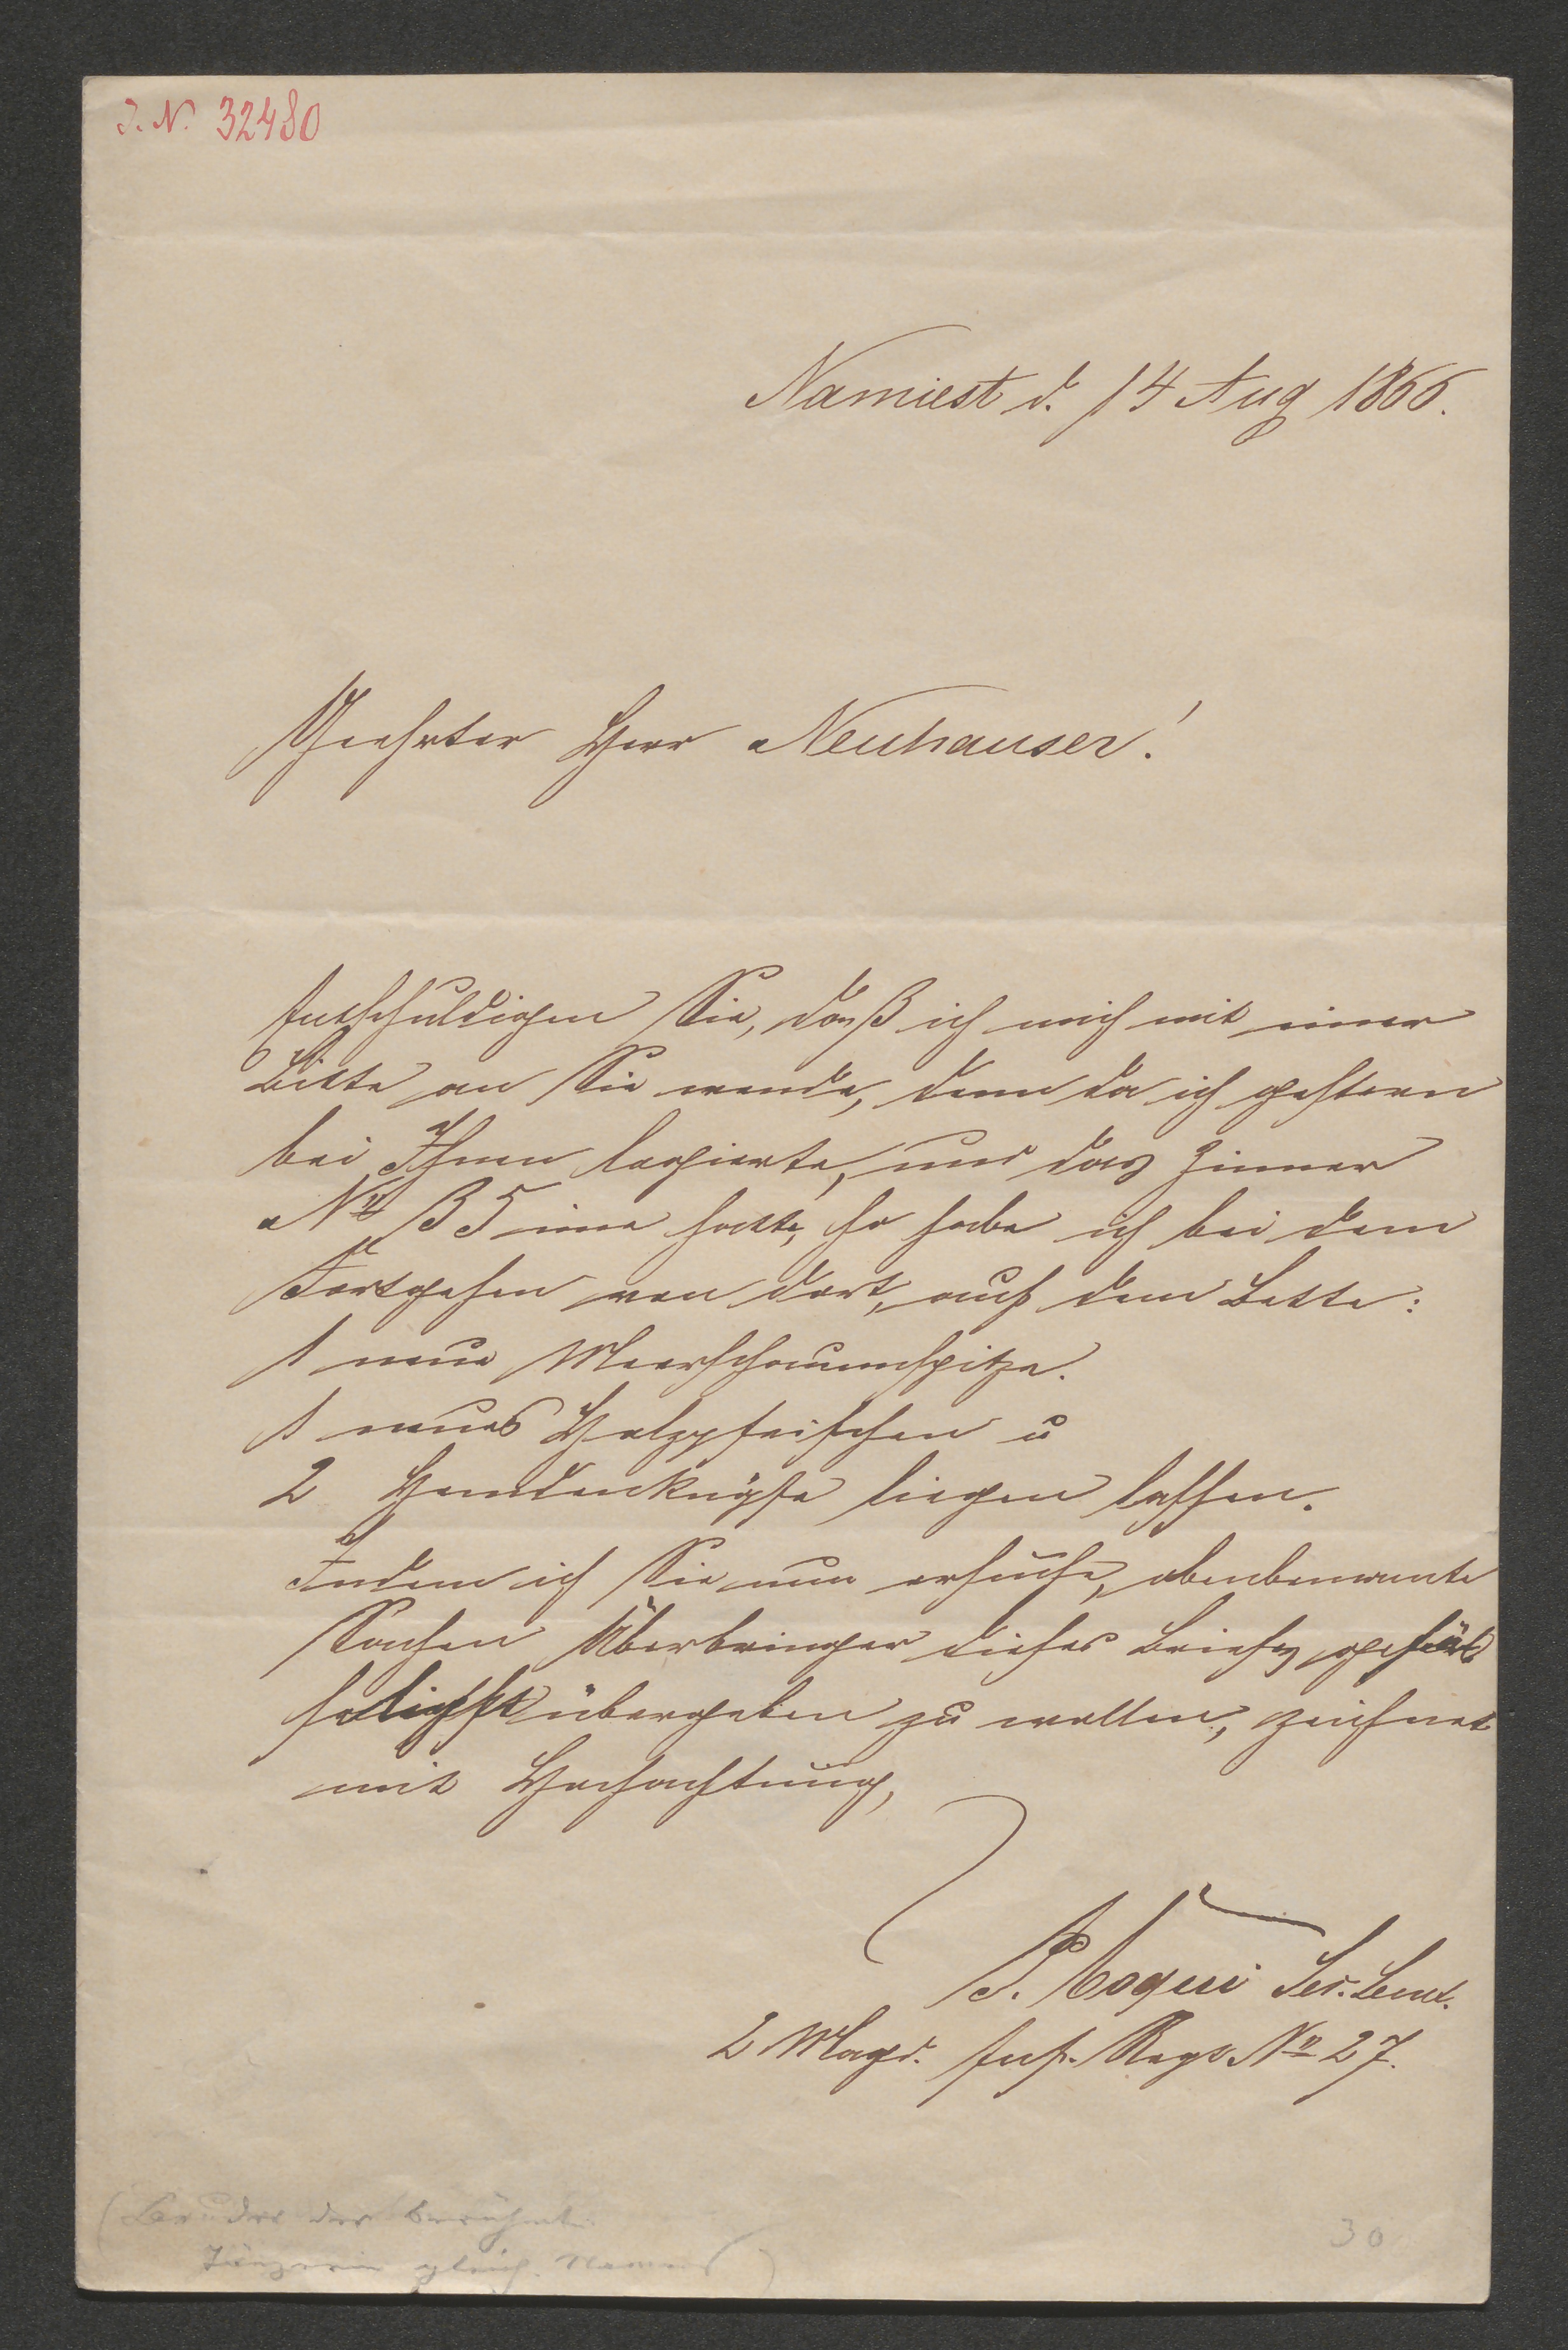 J. N. 32480
Namiest d. 14 Aug 1866.
Geehrter Herr Neuhauser!
Entschuldigen Sie, daß ich mich mit einer
Bitte an Sie wende, denn da ich gestern
bei Ihnen logierte, und das Zimmer
No 35 inne hatte, so habe ich bei dem
Fortgehen von dort, auf dem Bette:
1 neue Meerschaumspitze.
1 neues Holzpfeifchen u
2 Hemdenknöpfe liegen lassen.
Indem ich Sie nun ersuche, obenbenannte
Sachen Überbringer dieses Briefes
übergeben zu wollen, zeichnet
mit Hochachtung,
2 Inf. Regt. No 27.
(Bruder der berühmten
Tänzerin gleich. Namens)
30